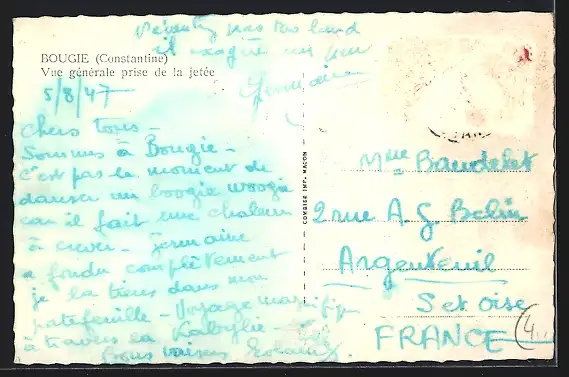 pas tas lard
il exagère un peu
Germaine
BOUGIE (Constantine)
Vue générale prise de la jetée
5/8/47
Chers tous -
Sommes à Bougie -
C'est pas le moment de
danser un boogie woogie
car il fait une chaleur
à crever - Germaine
a fondu complètement
je la tiens dans mon
- Voyage magnifique
à travers la Kabylie -
Bons baisers
COMBIER IMP. MACON
Mme Baudelet
2 rue A. G. Belin
Argenteuil
S et Oise
FRANCE